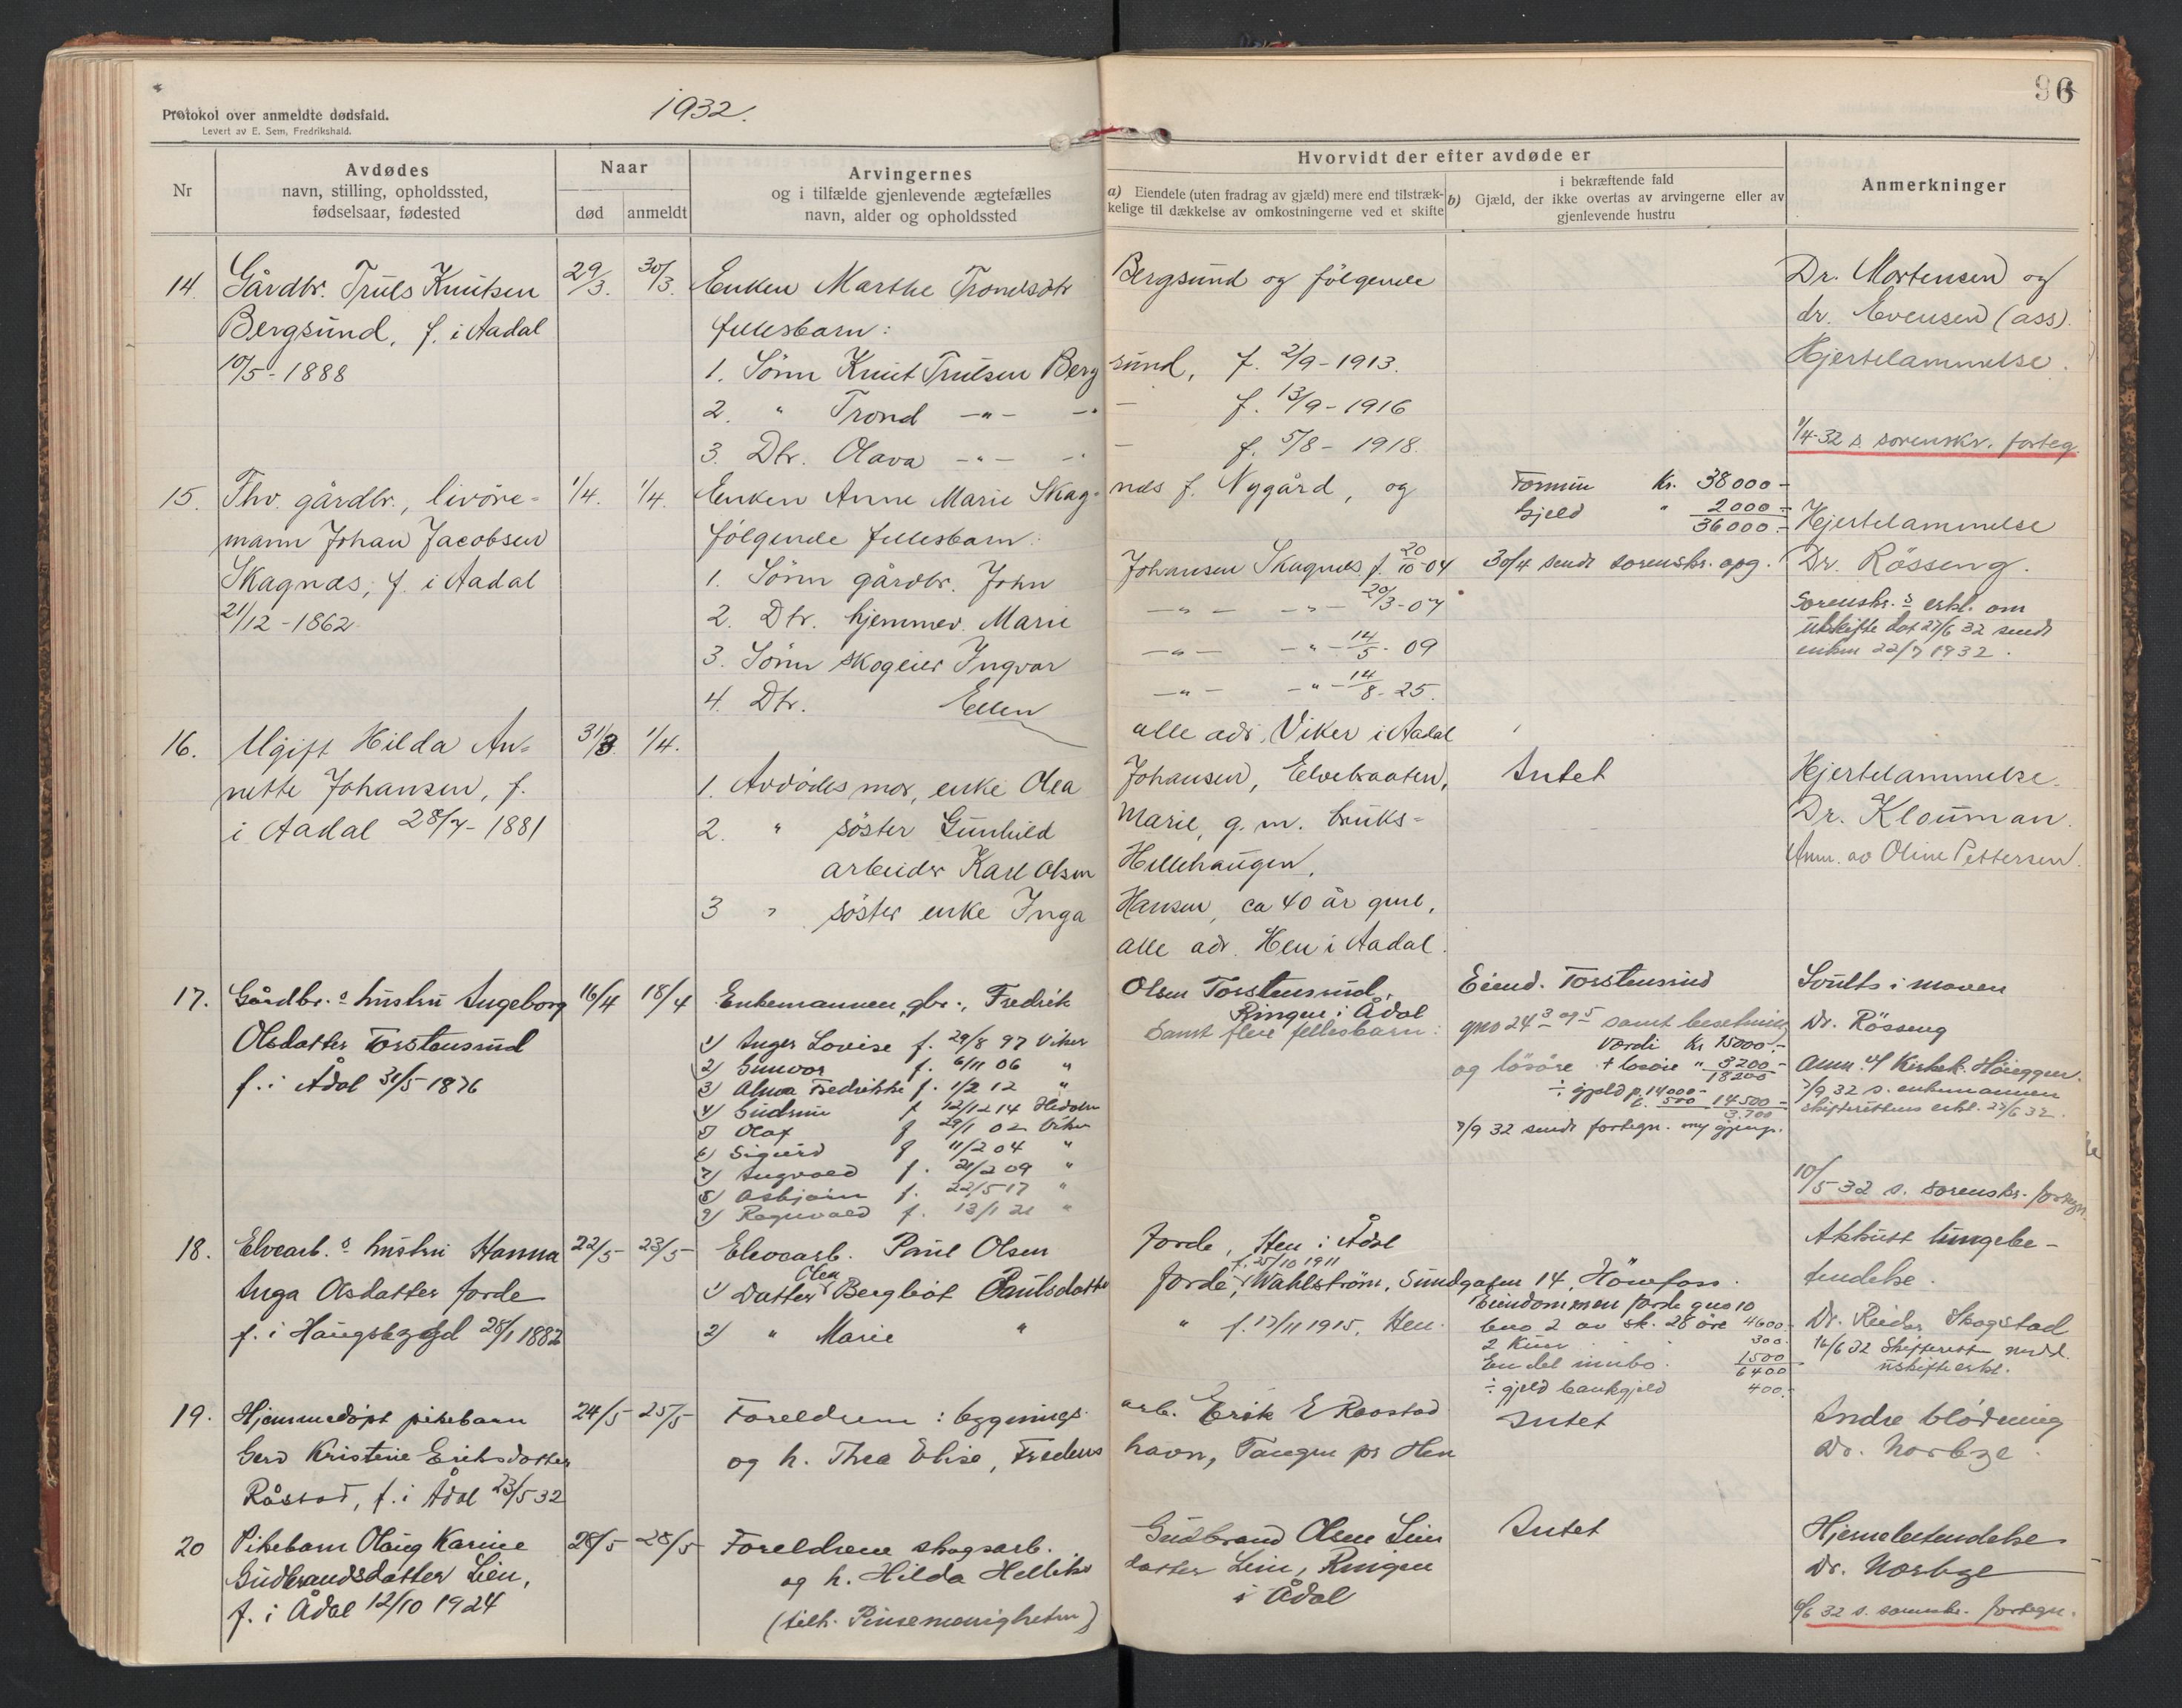 Protokol over anmeldte dødsfald.
Levert av E. Sem, Fredrikshald.
1932.
36
Nr
Avdødes
navn, stilling, opholdssted,
fødselsaar, fødested
Naar
død
anmeldt
Arvingernes
og i tilfælde gjenlevende ægtefælles
navn, alder og opholdssted
Hvorvidt der efter avdøde er
a) Eiendele (uten fradrag av gjæld) mere end tilstræk-
kelige til dækkelse av omkostningerne ved et skifte
i bekræftende fald
b) Gjæld, der ikke overtas av arvingerne eller av
gjenlevende hustru
Anmerkninger
14. Gårdbr. Truls Knutsen
Bergsund, f. i Aadal
10/5 - 1888
29/3. 30/3.
Enken Marthe Trondsdtr Bergsund og følgende
fellesbarn:
1. Sönn Knut Trulsen Bergsund, f. 2/9 - 1913.
2. " Trond -"- - f. 13/9 - 1916
3. Dtr. Olava -"- - f. 5/8 - 1918.
Dr. Mortensen og
dr. Evensen (ass).
Hjertelammelse.
1/4-32 s sorenskr. forteg.
15. Fhv. gårdbr., livöre-
mann Johan Jacobsen
Skagnæs, f. i Aadal
21/12 - 1862.
1/4. 1/4.
Enken Anne Marie Skagnæs f. Nygård, og
følgende fellesbarn:
1. Sönn gårdbr. John Johansen Skagnæs f. 20/10-04
2. Dtr. hjemmev. Marie -"- -"- 20/3-07
3. Sönn skogeier Ingvar -"- -"- 14/5-09
4. Dtr. Ellen -"- -"- 14/8-25.
alle adr. Viker i Aadal
Formue Kr. 38000-
Gjeld " 2000-
36000.-
30/4 sendt sorenskr. opg.
Hjertelammelse
Dr. Rösseng.
Sorenskr.s erkl. om
uskifte dat 27/6 32 sendt
enken 22/7 1932.
16. Ugift Hilda An-
nette Johansen, f.
i Aadal 28/7 - 1881
31/3. 1/4.
1. Avdödes mor, enke Olea Johansen, Elvebraaten,
2. " söster Gunhild Marie, g. m. bruks-
arbeider Karl Olsen Hellehaugen,
3 " söster enke Inga Hansen, ca 40 år gml,
alle adr. Hen i Aadal.
Intet
Hjertelammelse.
Dr. Klouman.
Anm. av Oline Pettersen.
17. Gårdbr.s hustru Ingeborg
Olsdatter Torstensrud
f. i Ådal 31/5-1876
16/4 18/4
Enkemannen, gbr., Fredrik Olsen Torstensrud,
Ringen i Ådal
Samt flere fellesbarn:
1) Inger Lovise f. 29/8 97 Viker
2) Gunvor f. 6/11 06 "
3) Alma Fredrikke f. 1/2 12 "
4) Gudrun f 12/12 14 Hedalen
5) Olaf f 29/1 02 Viker
6) Sigurd f 11/2 04 "
7) Ingvald f. 21/2 09 "
8) Asbjörn f. 22/5 17 "
9) Ragnvald f. 13/1 21 "
Eiend. Torstensrud
gno 24 3 og 5 samt besetning
Verdi Kr 15000.-
og lösöre + lösöre " 3200.-
18200
÷ gjeld p. 14000-
500 14500-
3.700
7/9 32 sendt fortegn. 
Dr. Rösseng
7/9 32 s. enkemannen
skifterettens erkl. 27/6 32.
10/5 32 s. sorenskr. fortegn.
18. Elvearb.s hustru Hanna
Inga Olsdatter Jorde
f. i Haugsbygd 28/1 1882
22/5 23/5
Elvearb. Paul Olsen Jorde, Hen i Ådal
f. 25/10 1911
1) Datter Olea Bergliot Paulsdatter Jorde, Wahlström, Sundgaten 14, Hönefoss.
2) " Marie " " f. 17/11 1915, Hen.
Eiendommen Jorde gno 10
bno 2 av sk. 28 öre 4600-
2 Kuer 300.-
En del innbo. 1500
6400
÷ gjeld bankgjeld 400.-
Akkutt lungebe-
tendelse.
Dr. Reidar Skogstad
16/6 32 Skifteretten medd.
uskifteerkl.
19. Hjemmedöpt pikebarn
Gerd Kristine Eriksdatter
Råstad, f. i Ådal 23/5 32
24/5 25/5
Foreldrene: bygnings- arb. Erik E Raastad
og h. Thea Elise, Fredenshavn, Tangen pr Hen
Intet
Indre blödning
Dr. Norbye.
20 Pikebarn Olaug Karine
Gudbrandsdatter Lien,
f. i Ådal 12/10 1924
28/5 28/5
Foreldrene skogsarb. Gudbrand Olsen Lien
og h. Hilda Helliksdatter Lien, Ringen
i Ådal
(tilh. Pinsemenigheten)
Intet
Hjernebetendelse
Dr. Norbye
6/6 32 s. sorenskr. fortegn.